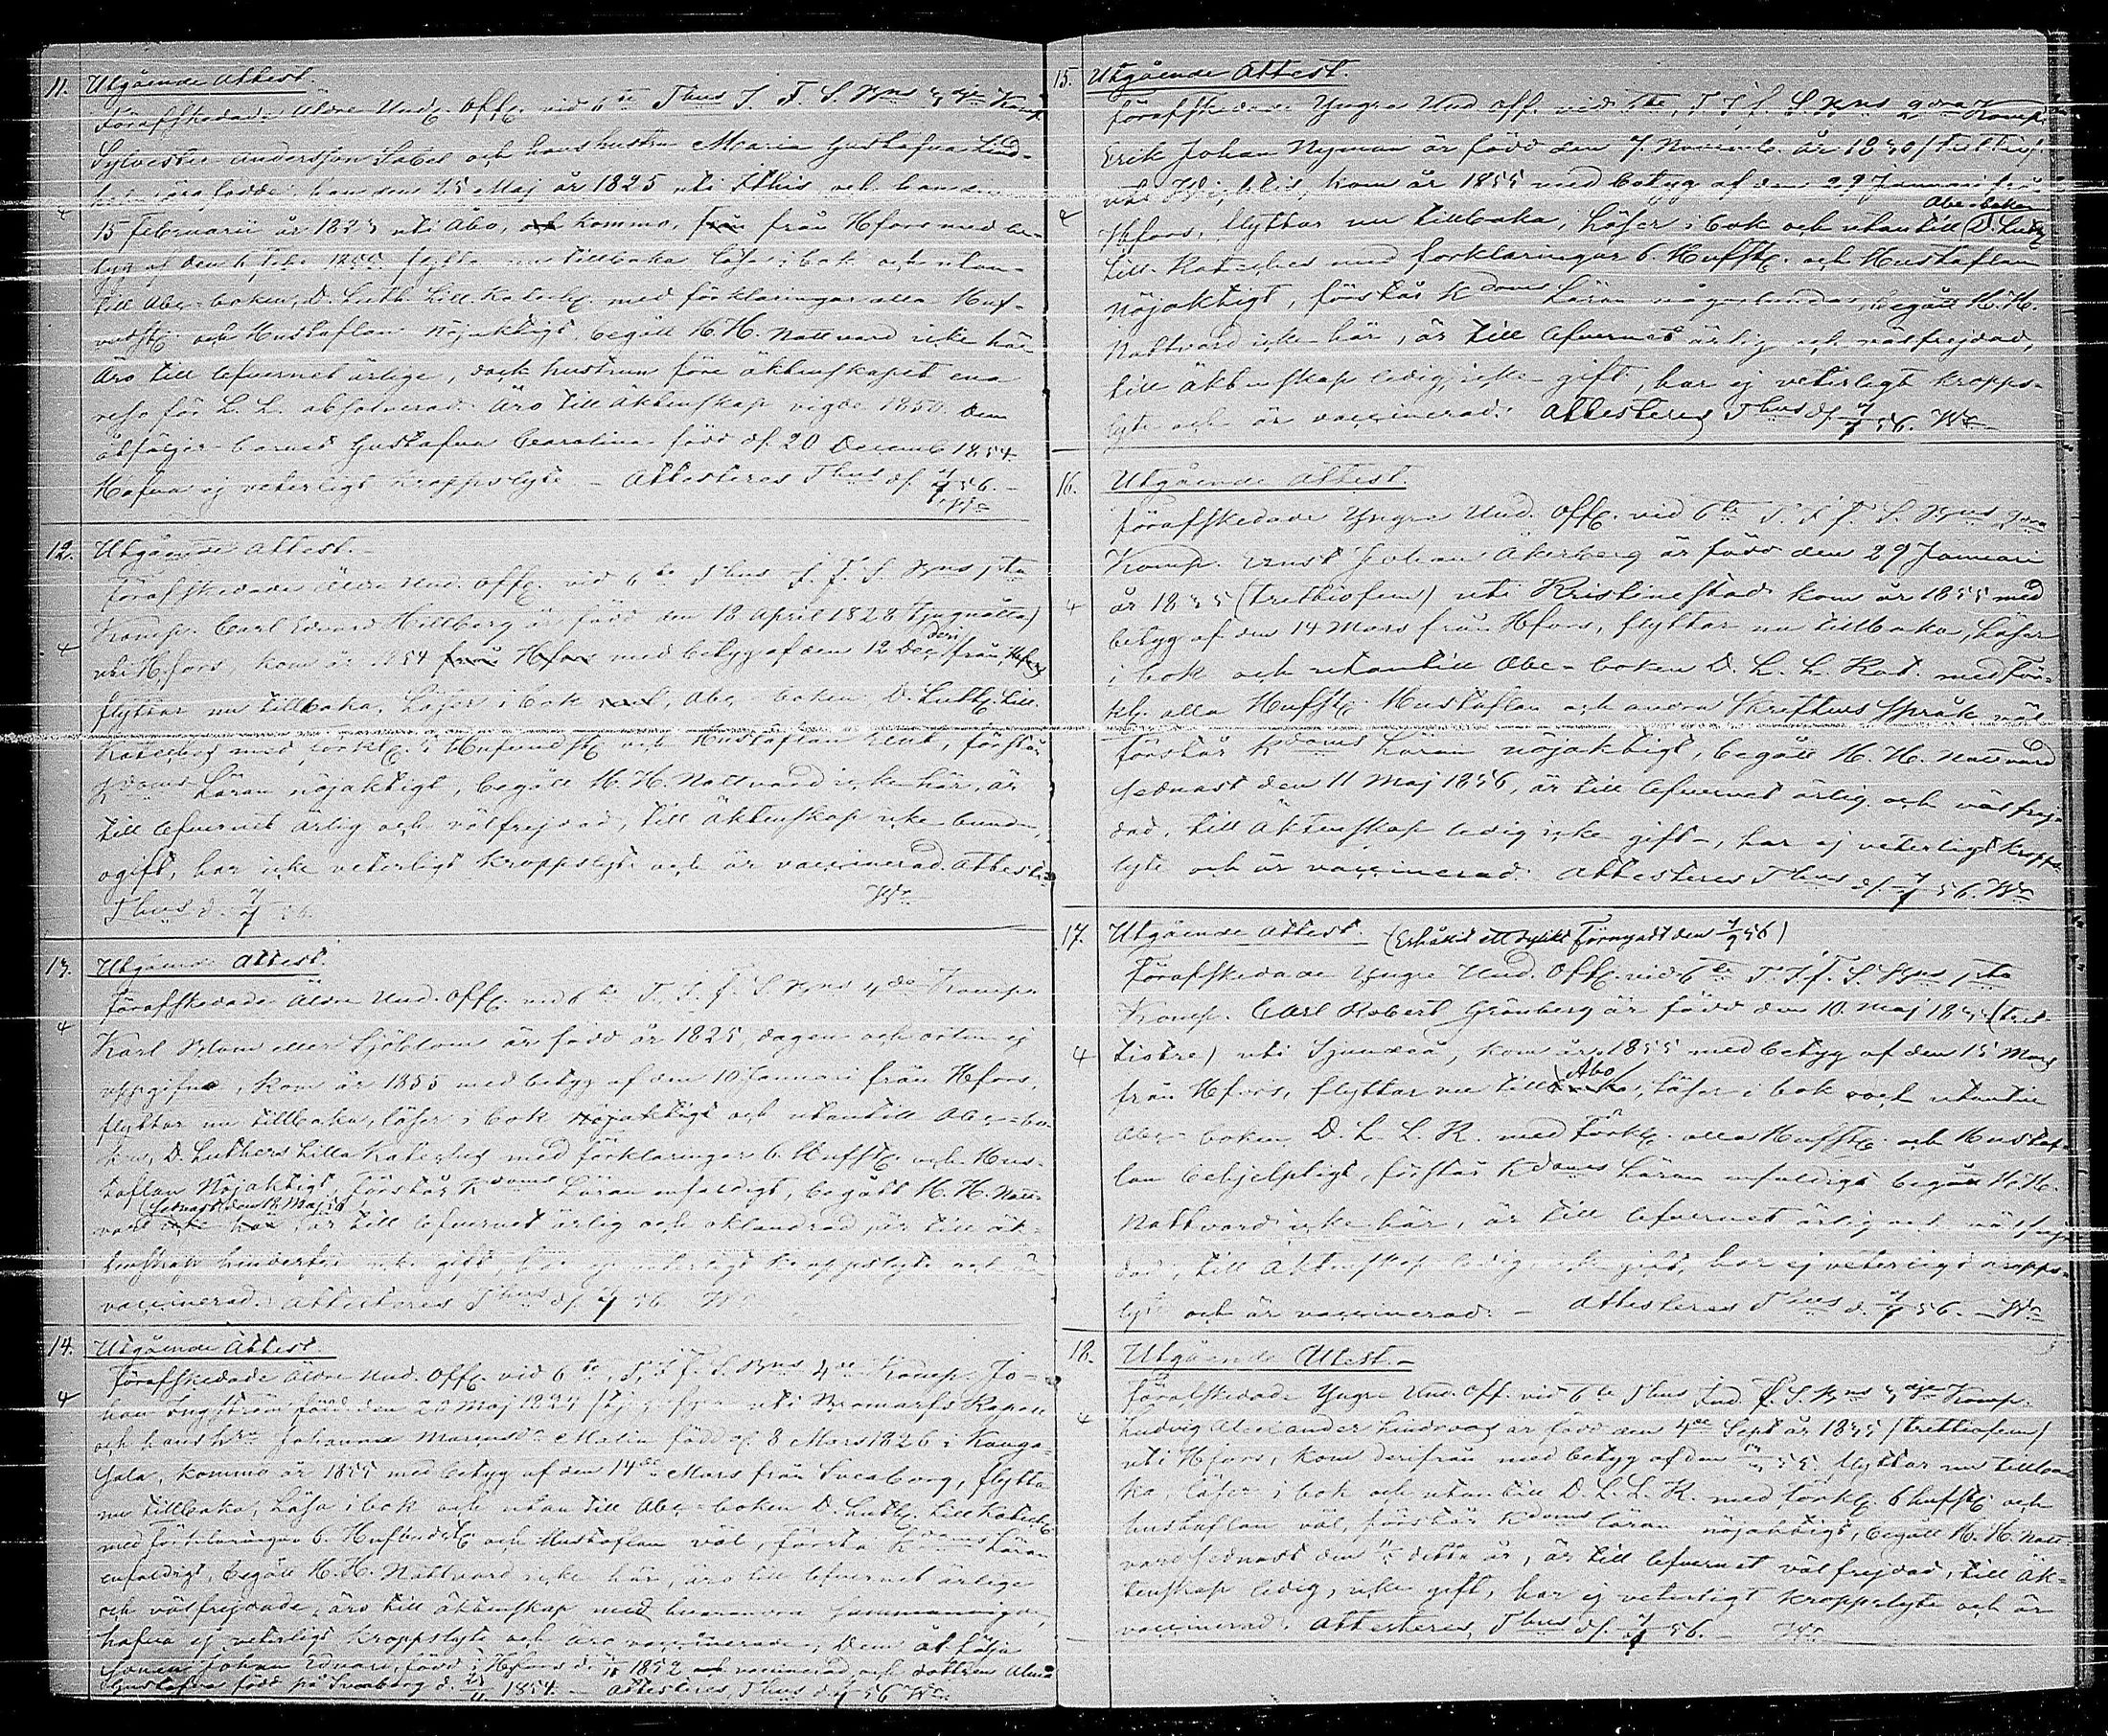 11. Utgående Attest.
Förafskedade Äldre Und. Offc. vid 6te Thus I. F. S. Bns 3dje Komp.
Sylvester Andersson Sabel och hans hustru Maria Gustafva Lind-
äro födde: han den 15 Maj år 1825 uti Ithis och hon den
15 Februarii år 1823 uti Åbo, och kommo, från från Hfors med be-
tyg af den 6 Febr. 1855 flytta nu tillbaka läsa i bok och utan-
till Abc-boken, D. Luth. Lill. Kateches med förklaringar alla Huf-
vudst. och Hustaflan nöjaktigt, begått H. H. Nattvard icke här
Äro till lefvernet ärlige, dock hustrun före äktenskapet ena
resa för L. L. absolverad. Äro till Äktenskap vigde 1850. Dem
åtföljer barnet Gustafva Carolina född d. 20 Decemb 1854.
Hafva ej veterligt kroppslyte. - Attesteras Thus d. 7/7 56. -
Wn
12. Utgående Attest. -
4
Förafskedade Äldre Und. Offc. vid 6te Thus I. F. S. Bns 1sta
Komp. Carl Edvard Hellberg är född den 18 April 1828 (Tjuguåtta)
uti Hfors, kom år 1854 från Hfors med betyg af den 12 Dec. från Hfors
flyttar nu tillbaka, Läser i bok och, Abc boken D. Luth. Lill.
Kateches med förkl. Hufvudst och Hustaflan, förstår
Kdoms Läran nöjaktigt, begått H. H. Nattvard icke här, är
till lefvernet ärlig och välfrejdad, till äktenskap icke bunden,
ogift, har icke veterligt kroppslyte och är vaccinerad. Attesteras
Thus d. 7/7 56. Wn
13. Utgående Attest.
4
Förafskedade Äldre Und. Offc. vid 6te T. I. F. S. Bns 4de Komp.
Karl Blom eller Sjöblom är född år 1825, dagen och orten ej
uppgifne, kom år 1855 med betyg af den 10 Januari från Hfors,
flyttar nu tillbaka, läser i bok nöjaktigt och utantill Abc-bo-
ken, D. Luthers Lilla Kateches med förklaringar 6 Hufst. och Hus-
taflan Nöjaktigt, förstår Kdoms Läran enfaldigt, begått H. H. Natt-
vard icke här (sednast den Maj), är till lefvernet ärlig och oklandrad, är till äk-
tenskap hinderfri icke gift, har ej veterligt kroppslyte och är
vaccinerad. Attesteras Thus d. 7/7 56. Wn
14. Utgående Attest.
4
Förafskedade Äldre Und. Offc. vid 6te T. I. F. S. Bns 4de Komp. Jo-
han Engström född den 20 Maj 1824 (tjugufyra) uti Bromarfs Kapell
och hans Hru Johanna Mariusdr Malin född d. 8 Mars 1826 i Kanga-
sala, kommo år 1855 med betyg af den 14de Mars från Sveaborg, flytta
nu tillbaka, Läsa i bok och utan till Abc-boken D. Luth. Lill Katech
med förklaringar 6. Hufvudst och Hustaflan väl, förstå Kdoms Läran
enfaldigt, begått H. H. Nattvard icke här, äro till lefvernet ärlige
och välfrejdade, äro till äktenskap med hvarandra sammanvigde,
hafva ej veterligt kroppslyte och äro vaccinerade, Dem åtfölja
Sonen Johan Edvard, född i Hfors d. 1852 och vaccinerad och dottren Alma
Gustafva född på Sveaborg d. 1854. - Attesteras Thus d. 7/7 56 Wn
15. Utgående Attest.
4
Förafskedade Yngre Und Off. vid 6te, T. I. f. S. Bns 2dra Komp.
Erik Johan Nyman är född den 7. Novemb. år 1830 (trettio)
uti kom år 1855 med betyg af den 29 Januari från
Hfors, flyttar nu tillbaka, Läser i bok och utantill Abc-boken D. Luth
Lill. Kateches med förklaringar 6. Hufst. och Hustaflan
nöjaktigt, förstår Kdoms Läran någorlunda, begått H. H.
Nattvard icke här, är till lefvernet ärlig och välfrejdad,
till äktenskap ledig, icke gift, har ej veterligt kropps-
lyte och är vaccinerad. Attesteras Thus d. 7/7 56. Wn
16. Utgående Attest.
4
Förafskedade Yngre Und. Offc. vid 6te T. I. F. S. Bns 2dra
Komp. Ernst Johan Åkerberg är född den 29 Januari
år 1835 (trettiofem) uti Kristinestad kom år 1855 med
betyg af den 14 Mars från Hfors, flyttar nu tillbaka, Läser
i bok och utantill Abc-boken D. L. L. Kat. med för-
kl. alla Hufst. Hustaflan och andra Skriftens Språk väl
förstår Kdoms Läran nöjaktigt, begått H. H. Nattvard
sednast den 11 Maj 1856, är till lefvernet ärlig och välfrej-
dad, till Äktenskap ledig icke gift -, har ej veterligt kropps-
lyte och är vaccinerad. Attesteras Thus d. 7/7 56. Wn
17. Utgående Attest. (Erhållit ett dylikt Förnyadt den 7/9 56)
4
Förafskedade Yngre Und. Offc. vid 6te T. I. f. S. Bns 1sta
Komp. Carl Robert Grönberg är född den 10. Maj 1833 (tret-
tiotre) uti Sjundeå, kom år 1855 med betyg af den 15 Mars
från Hfors, flyttar nu till Åbo, läser i bok och utantill
Abc-boken, D. L. L. K. med förkl. alla Hufst. och Hustaf-
lan behjelpligt, förstår Kdoms Läran enfaldigt begått H. H.
Nattvard icke här, är till lefvernet ärlig och välfrej-
dad, till Äktenskap ledig, icke gift, har ej veterligt kropps-
lyte och är vaccinerad. - Attesteras Thus d. 7/7 56. - Wn
18. Utgående Attest. -
4
Förafskedade Yngre Und. Off. vid 6te Thus Ind. F. S. Bns 3dje Komp.
Ludvig Alexander Lindroos är född den 4de Sept år 1835 (trettiofem)
uti Hfors, kom derifrån med betyg af den 55. flyttar nu tillba-
ka, läser i bok och utantill D. L. L. K. med förkl. 6 hufst. och
hustaflan väl, förstår Kdoms läran nöjaktigt, begått H. H. Natt-
vard sednast den detta år, är till lefvernet välfrejdad, till Äk-
tenskap ledig, icke gift, har ej veterligt kroppslyte och är
vaccinerad. Attesteras, Thus d. 7/7 56. - Wn